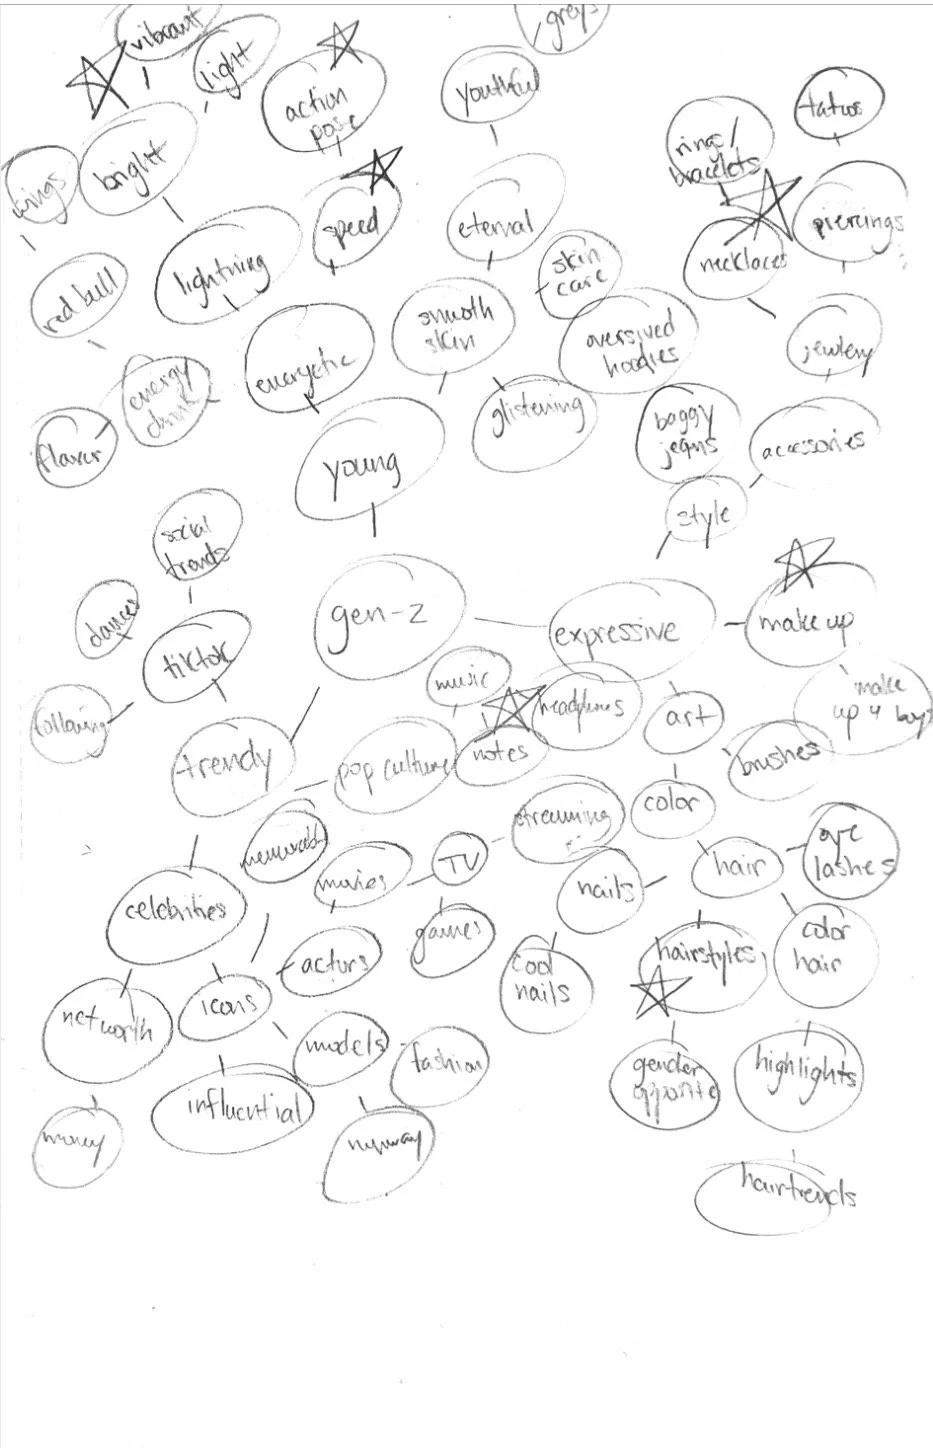 greys
vibrant
light
action
pose
youthful
tatoos
rings/
bracelets
wings
bright
speed
eternal
piercings
necklaces
lightning
skin
care
red bull
smooth
skin
oversived
hoodies
jewlery
energetic
energy
drink
glistening
baggy
jeans
accessories
flavor
young
style
social
trends
dances
gen-z
expressive
make up
tiktok
music
headphones
art
make
up 4 boys
following
trendy
pop culture
notes
brushes
color
streaming
TV
movies
hair
eye
lashes
nails
celebrities
games
hairstyles
color
hair
actors
cool
nails
icons
net worth
models
fashion
gender
opposite
highlights
influential
money
runway
hairtrends